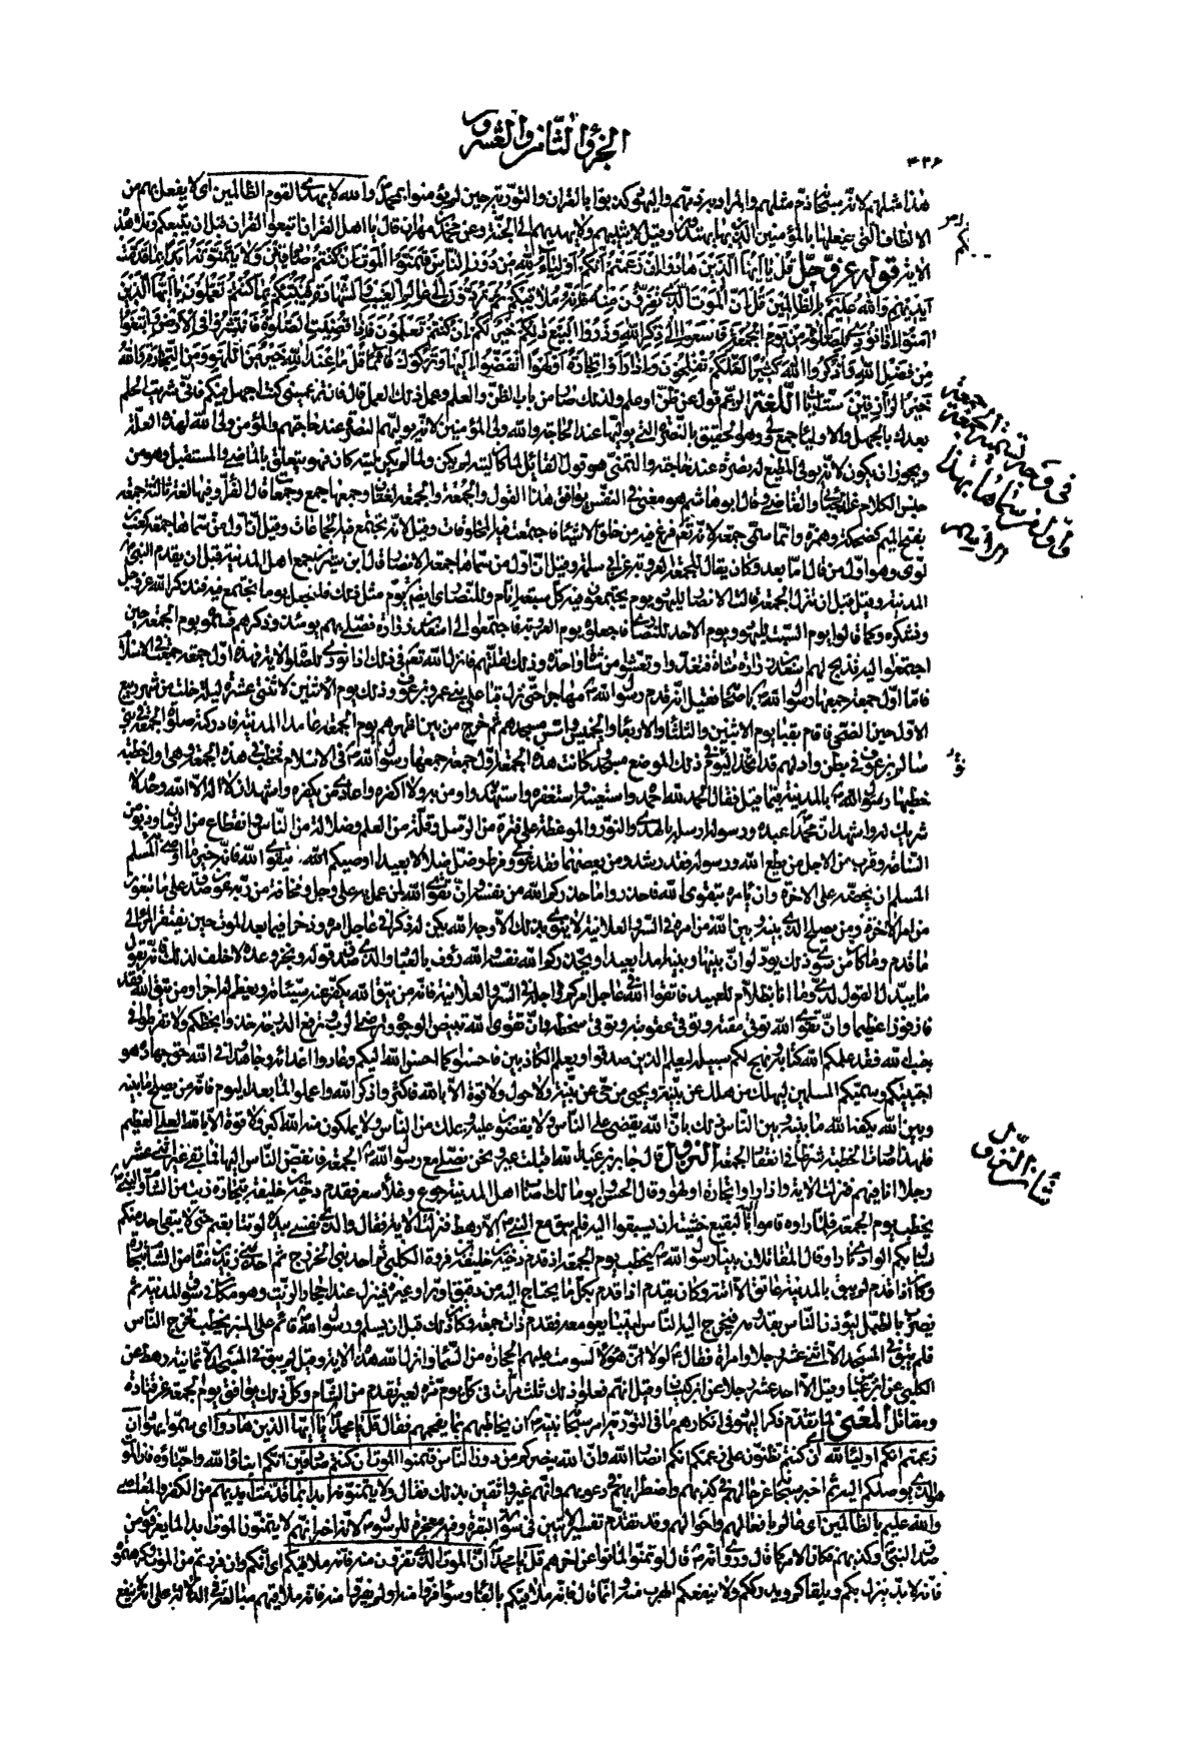 الجزؤ الثامن والعشرون
٤٣٤
هذا مثلهم لانه سبحانه ذم مثلهم والمراد به ذمهم واليهود كذبوا بالقران والتورية حين لم يؤمنوا بمحمد والله لا يهدى القوم الظالمين اى لا يفعل بهم من
الالطاف التى يفعلها بالمؤمنين الذين بها يهتدون وقيل لا يثيبهم ولا يهديهم الى الجنة وعن محمد بن مهران قال يا اهل القران اتبعوا القران قبل ان يتبعكم وتلا هذه
الاية قوله عز وجل قل يا ايها الذين هادوا ان زعمتم انكم اولياء لله من دون الناس فتمنوا الموت ان كنتم صادقين ولا يتمنونه ابدا بما قدمت
ايديهم والله عليم بالظالمين قل ان الموت الذى تفرون منه فانه ملاقيكم ثم تردون الى عالم الغيب والشهادة فينبئكم بما كنتم تعملون يا ايها الذين
امنوا اذا نودى للصلوة من يوم الجمعة فاسعوا الى ذكر الله وذروا البيع ذلكم خير لكم ان كنتم تعلمون فاذا قضيت الصلوة فانتشروا فى الارض وابتغوا
من فضل الله واذكروا الله كثيرا لعلكم تفلحون واذا راوا تجارة او لهوا انفضوا اليها وتركوك قائما قل ما عند الله خير من اللهو ومن التجارة والله
خير الرازقين اللغة الزعم قول عن ظن او علم ولذلك صار من باب الظن والعلم وعمل ذلك العمل قال فان تزعمينى كنت اجهل فيكم فانى شريت الحلم
بعدك بالجهل والاولياء جمع ولى وهو الحقيق بالنصرة التى يوليها عند الحاجة والله ولى المؤمنين لانه يوليهم النصرة عند حاجتهم والمؤمن ولى الله لهذه العلة
ويجوز ان يكون لانه يولى المطيع له بصرة عند حاجته والتمنى هو قول القائل لما كان ليته لم يكن ولما لم يكن ليته كان فهو يتعلق بالماضى والمستقبل وهو من
جنس الكلام عن الجبائى والقاضى وقال ابو هاشم هو معنى فى النفس يوافق هذا القول والجمعة والجمعة لغتان وجمعها جمع وجمعات قال الفراء وفيها لغة ثالثة جمعة
بفتح الميم كضحكة وهمزة وانما سمى جمعة لانه تعالى فرغ فيه من خلق الاشياء فاجتمعت فيه المخلوقات وقيل لانه تجتمع فيه الجماعات وقيل ان اول من سماها جمعة كعب بن
لوى وهو اول من قال اما بعد وكان يقال للجمعة العروبة عن ابى سلمة وقيل ان اول من سماها جمعة الانصار قال ابن سيرين جمع اهل المدينة قبل ان يقدم النبى
المدينة وقيل قبل ان تنزل الجمعة قالت الانصار لليهود يوم يجتمعون فيه كل سبعة ايام وللنصارى ايضا يوم مثل ذلك فلنجعل يوما نجتمع فيه فنذكر الله عز وجل
ونشكره وكما قالوا يوم السبت لليهود ويوم الاحد للنصارى فاجعلوه يوم العروبة فاجتمعوا الى اسعد بن زرارة فصلى بهم يومئذ وذكرهم فسموه يوم الجمعة حين
اجتمعوا اليه فذبح لهم اسعد بن زرارة شاة فتغدوا وتعشوا من شاة واحدة وذلك لقلتهم فانزل الله تعالى فى ذلك اذا نودى للصلوة الاية فهذه اول جمعة جمعت فى الاسلام
فاما اول جمعة جمعها رسول الله باصحابه فقيل انه قدم رسول الله مهاجرا حتى نزل قبا على بنى عمرو بن عوف وذلك يوم الاثنين لاثنتى عشرة ليلة خلت من شهر ربيع
الاول حين الضحى فاقام بقبا يوم الاثنين والثلثاء والاربعاء والخميس واسس مسجدهم ثم خرج من بين اظهرهم يوم الجمعة عامدا المدينة فادركته صلوة الجمعة فى بنى
سالم بن عوف فى بطن واد لهم قد اتخذ اليوم فى ذلك الموضع مسجد وكانت هذه الجمعة اول جمعة جمعها رسول الله فى الاسلام فخطب فى هذه الجمعة وهى اول خطبة
خطبها رسول الله بالمدينة فيما قيل فقال الحمد لله احمده واستعينه واستغفره واستهديه واومن به ولا اكفره واعادى من يكفره واشهد ان لا اله الا الله وحده لا
شريك له واشهد ان محمدا عبده ورسوله ارسله بالهدى والنور والموعظة على فترة من الرسل وقلة من العلم وضلالة من الناس وانقطاع من الزمان ودنو من
الساعة وقرب من الاجل من يطع الله ورسوله فقد رشد ومن يعصهما فقد غوى وفرط وضل ضلالا بعيدا اوصيكم بتقوى الله فانه خير ما اوصى به المسلم
المسلم ان يحضه على الاخرة وان يامره بتقوى الله فاحذروا ما حذركم الله من نفسه وان تقوى الله لمن عمل به على وجل ومخافة من ربه عون صدق على ما تبغون
من امر الاخرة ومن يصلح الذى بينه وبين الله من امره فى السر والعلانية لا ينوى بذلك الا وجه الله يكن له ذكرا فى عاجل امره وذخرا فيما بعد الموت حين يفتقر المرء الى
ما قدم وما كان من سوى ذلك يود لو ان بينها وبينه امدا بعيدا ويحذركم الله نفسه والله رؤف بالعباد والذى صدق قوله ونجز وعده لا خلف لذلك فانه يقول
ما يبدل القول لدى وما انا بظلام للعبيد فاتقوا الله فى عاجل امركم واجله فى السر والعلانية فانه من يتق الله يكفر عنه سيئاته ويعظم له اجرا ومن يتق الله فقد
فاز فوزا عظيما وان تقوى الله توقى مقته وتوقى عقوبته وتوقى سخطه وان تقوى الله تبيض الوجوه وترضى الرب وترفع الدرجة خذوا بحظكم ولا تفرطوا فى
جنب الله فقد علمكم الله كتابه ونهج لكم سبيله ليعلم الذين صدقوا ويعلم الكاذبين فاحسنوا كما احسن الله اليكم وعادوا اعداءه وجاهدوا فى الله حق جهاده هو
اجتبيكم وسميكم المسلمين ليهلك من هلك عن بينة ويحيى من حى عن بينة ولا حول ولا قوة الا بالله فاكثروا ذكر الله واعملوا لما بعد اليوم فانه من يصلح ما بينه
وبين الله يكفه الله ما بينه وبين الناس ذلك بان الله يقضى على الناس ولا يقضون عليه ويملك من الناس ولا يملكون منه الله اكبر ولا قوة الا بالله العلى العظيم
فلهذا صارت الخطبة شرطا فى انعقاد الجمعة النزول قال جابر بن عبد الله اقبلت عير ونحن نصلى مع رسول الله الجمعة فانفض الناس اليها فما بقى غير اثنى عشر
رجلا انا فيهم فنزلت الاية واذا راوا تجارة او لهوا وقال الحسن وابو مالك اصاب اهل المدينة جوع وغلاء سعر فقدم دحية بن خليفة بتجارة زيت من الشام والنبى
يخطب يوم الجمعة فلما راوه قاموا اليه بالبقيع خشية ان يسبقوا اليه فلم يبق مع النبى الا رهط فنزلت الاية فقال والذى نفسى بيده لو تتابعتم حتى لا يبقى احد منكم
لسال بكم الوادى نارا وقال المقاتلان بينا رسول الله يخطب يوم الجمعة اذ قدم دحية بن خليفة بن فروة الكلبى ثم احد بنى الخزرج ثم احد بنى زيد بن مناة من الشام بتجارة
وكان اذا قدم لم يبق بالمدينة عاتق الا اتته وكان يقدم اذا قدم بكل ما يحتاج اليه من دقيق او بر او غيره فينزل عند احجار الزيت وهو مكان فى سوق المدينة ثم
يضرب بالطبل ليؤذن الناس بقدومه فيخرج اليه الناس ليبتاعوا معه فقدم ذات جمعة وكان ذلك قبل ان يسلم ورسول الله قائم على المنبر يخطب فخرج الناس
فلم يبق فى المسجد الا اثنى عشر رجلا وامراة فقال لولا هؤلاء لسومت عليهم الحجارة من السماء وانزل الله هذه الاية وقيل لم يبق فى المسجد الا ثمانية رهط عن
الكلبى عن ابن عباس وقيل الا احد عشر رجلا عن ابن كيسان وقيل انهم فعلوا ذلك ثلث مرات فى كل يوم مرة لعير تقدم من الشام وكل ذلك يوافق يوم الجمعة عن قتادة
ومقاتل المعنى لما تقدم ذكر اليهود فى انكارهم ما فى التورية امر سبحانه نبيه ان يخاطبهم بما يفحمهم فقال قل يا محمد يا ايها الذين هادوا اى سموا يهودا ان
زعمتم انكم اولياء لله اى كنتم تظنون على زعمكم انكم انصار الله وان الله ينصركم من دون الناس فتمنوا الموت ان كنتم صادقين انكم ابناء الله واحباؤه فان الموت
هو الذى يوصلكم اليه ثم اخبر سبحانه عن حالهم فى كذبهم واضطرابهم فى دعويهم وانهم غير واثقين بذلك فقال ولا يتمنونه ابدا بما قدمت ايديهم من الكفر والمعاصى
والله عليم بالظالمين اى عالم بافعالهم واحوالهم وقد تقدم تفسير الايتين فى سورة البقرة وفيه معجزة للرسول لانه اخبر انهم لا يتمنون الموت ابدا لما يعرفون من
صدق النبى وكذبهم فكان الامر كما قال وروى انه قال لو تمنوا لماتوا عن اخرهم قل يا محمد ان الموت الذى تفرون منه فانه ملاقيكم اى انكم وان فررتم من الموت وكرهتموه
فانه لا بد ينزل بكم ويلقاكم ويدرككم ولا ينفعكم الهرب منه وانما قال فانه ملاقيكم بالفاء وسواء فروا منه او لم يفروا منه فانه ملاقيهم مبالغة فى الدلالة على انه لا ينفع
فى وجه تسمية الجمعة جمعة
واول من سماها بهذا
شان النزول